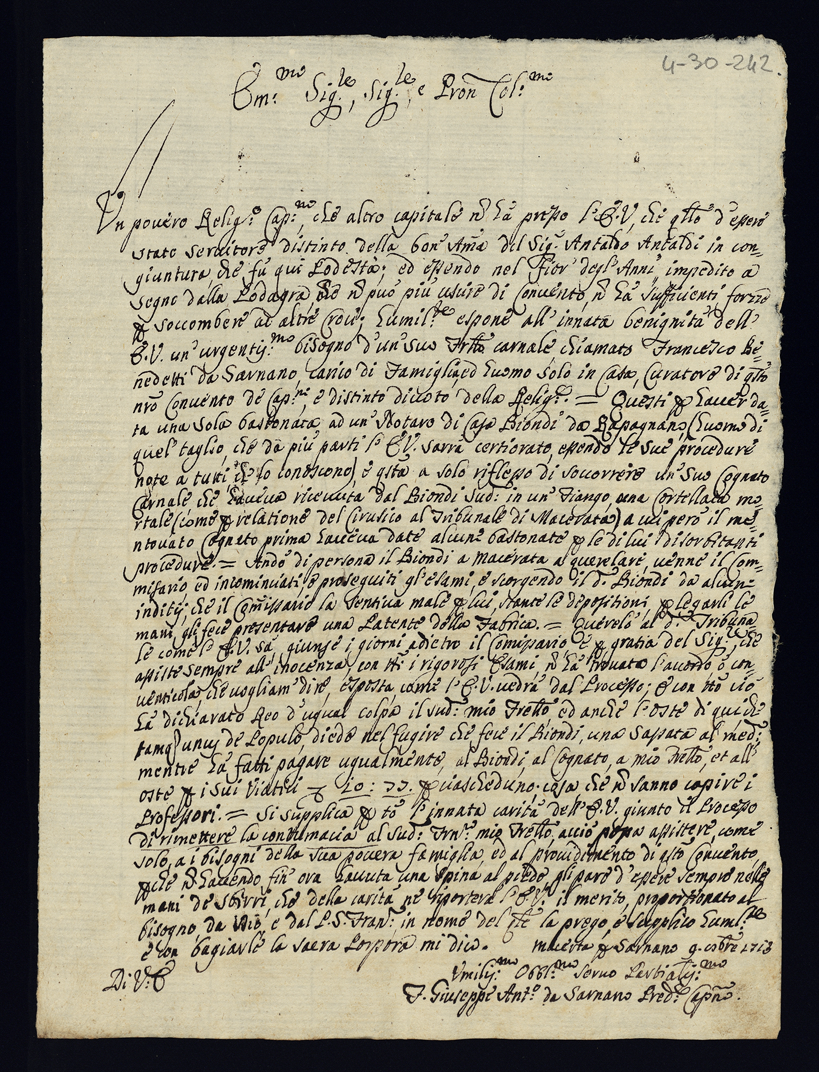 4-30-242.
Em.mo Sig.le, Sig.le e Pron Col.mo
Un povero Relig.o Cap.no, che altro capitale ñ hà presso l'E.V, che q̃llo d'essere
stato servitore distinto della bon: Am̃a del Sig.r Antaldo Antaldi in con=
giuntura che fù qui Podestà; ed essendo nel Fior degl'Anni impedito a
segno dalla Podagra che ñ può più uscire di Convento, ñ hà sufficienti forze
soccombere ad altre croci; humil.te espone all'innata benignità dell'
E.V. un'urgentiss.mo bisogno d'un suo Frẽllo carnale chiamato Francesco Be=
nedetti da Sarnano, carico di Famiglia, ed huomo solo in Casa, Curatore di q̃sto
nr̃o Convento de Cap.ni e distinto divoto della Relig.e = Questi p haver da=
ta una sola bastonata ad un' Notaro di Casa Biondi da Ripagnano, (huomo di
quel taglio, che da più parti l'E.V. sarrà certiorato, essendo le sue procedure
note a tutti che lo conoscono) e q̃sta a solo riflesso di soccorrere un'suo Cognato
Carnale che haveva ricevuta dal Biondi sud: in un' fiango, una Cortellata mo=
rtale (come p relatione del Cirusico al Tribunale di Macerata) a cui però il me=
ntovato Cognato prima haveva date alcune bastonate p le di lui disorbitanti
procedure. = Andò di persona il Biondi a Macerata a querelare, venne il Com=
missario ed incominciati, e proseguiti gl'esami, e scorgendo il d.o Biondi da alcuni
inditij, che il Com̃issario la sentiva male p lui stante le depositioni, p legarli le
mani, gli fece presentare una Patente della Fabrica. = Querelò al d.o Tribuna
le come l'E.V. sà, giunse i giorni adietro il Comissario e p gratia del Sig.re, che
assiste sempre all'inocenza, con tt̃i i rigorosi Esami ñ hà trovata l'accordo ò con
venticola, che vogliam' dire, esposta come l'E.V. vedrà dal Processo; e con tt̃o ciò
hà dichiarato Reo d'ugual colpa il sud: mio Frẽllo, ed anche l'oste di qui che
tamq̃ unus de Populo, diede nel fugire che fece il Biondi, una sassata al med:
mentre hà fatti pagare ugualmente, al Biondi, al Cognato, a mio Frẽllo, et all'
oste p i suoi Viatici 10: 77. p ciascheduno. cosa che ñ sanno capire i
Professori. = Si supplica p tõ l'innata carità dell'E.V. giunto il Processo
di rimettere la contumacia al sud: mio Frẽllo, acciò possa assistere, come
solo, a i bisogni della sua povera famiglia, ed al provedimento di q̃sto Convento,
p che ñ havendo fin' ora havuta una spina al piede, gli pare d'essere sempre nelle
mani de sbirri, che della carità ne riporterà l'E.V. il merito, proportionato al
bisogno da Dio, e dal P.S. Fran: in nome del q̃le la prego, e supplico humil.te
e con bagiarle la sacra Porpora mi dico. Macerta p Sarnano 9. cobre 1713
Di V.E Umiliss.mo Obbl.mo Servo
F. Giuseppe Ant.o da Sarnano Pred.e Capño.